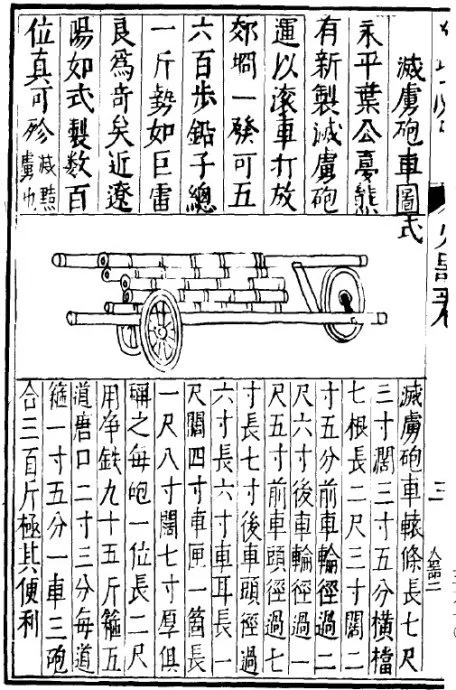 滅虜砲車圖式
永平葉公夢熊
有新製滅虜砲
運以滾車打放
郊坰一發可五
六百歩鉛子總
一斤勢如巨雷
良為竒矣近遼
陽如式製数百
位真可殄滅黠虜也
滅虜砲車轅條長七尺
三寸闊三寸五分橫檔
七根長二尺三寸闊二
寸五分前車輪徑過二
尺六寸後車輪徑過一
尺五寸前車頭徑過七
寸長七寸後車頭徑過
六寸長六寸車耳長一
尺闊四寸車匣一箇長
一尺八寸闊七寸厚俱
稱之每砲一位長二尺
用净鉄九十五斤箍五
道唐口二寸三分每道
箍一寸五分一車三砲
合三百斤極其便利
三